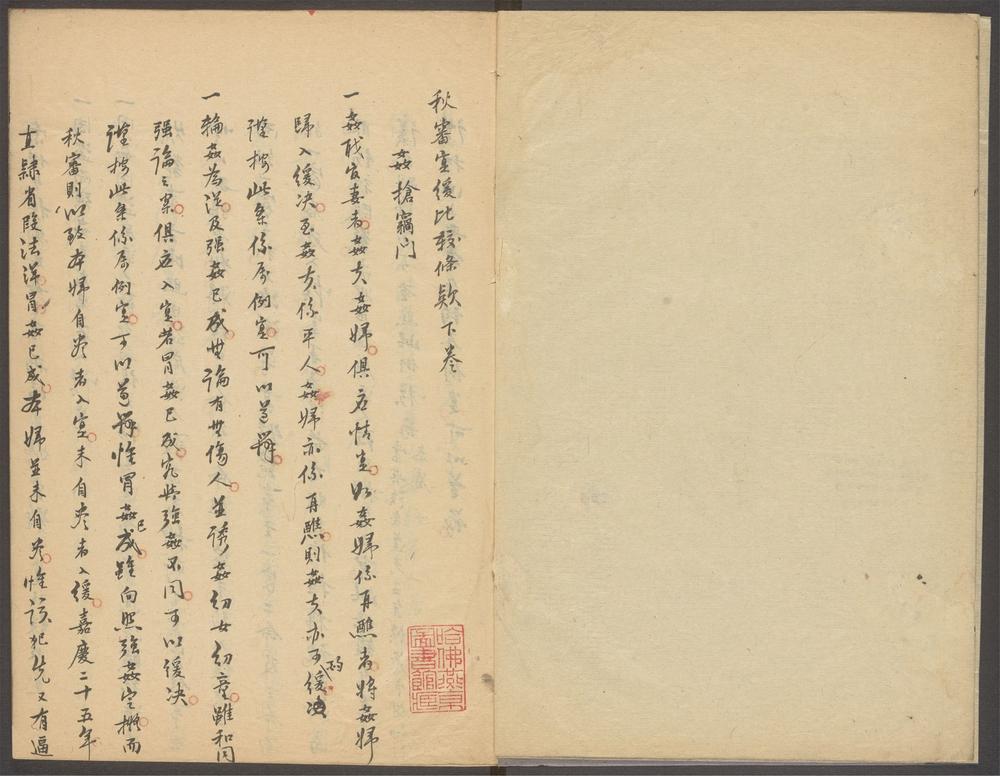 秋審實緩比較條欵下卷
姦搶竊門
一姦職官妻者姦夫姦婦俱應情實如姦婦係再醮者將姦婦
歸入緩决至姦夫係平人姦婦亦係再醮則姦夫亦可酌緩决
謹按此条係屬例實可以兰辦
一輪姦為從及强姦已成無論有無傷人並誘姦幼女幼童雖和同
强論之案俱应入實若冒姦已成究與强姦不同可以緩决
謹按此条係屬例實可以兰辦惟冒姦已成雖向照强姦定擬而
秋審則以致本婦自盡者入實未自盡者入緩嘉慶二十五年
直隸省段法洋冒姦已成本婦並未自盡惟該犯先又有逼
哈佛燕京圖書館藏